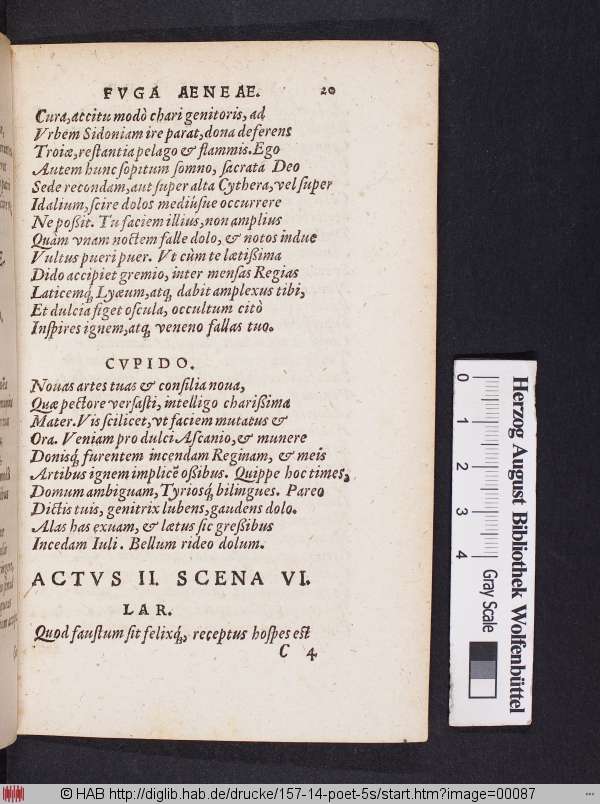 FVGA AENEAE. 20
Cura, accitu modò chari genitoris, ad
Vrbem Sidoniam ire parat, dona deferens
Troiæ, restantia pelago & flammis. Ego
Autem hunc sopitum somno, sacrata Deo
Sede recondam, aut super alta Cythera, vel super
Idalium, scire dolos mediúsue occurrere
Ne poßit. Tu faciem illius, non amplius
Quàm vnam noctem falle dolo, & notos indue
Vultus pueri puer. Vt cùm te lætißima
Dido accipiet gremio, inter mensas Regias
Laticemq́, Lyæum, atq, dabit amplexus tibi,
Et dulcia figet oscula, occultum citò
Inspires ignem, atq, veneno fallas tuo.
CVPIDO.
Nouas artes tuas & consilia noua,
Quæ pectore versasti, intelligo charißima
Mater. Vis scilicet, vt faciem mutatus &
Ora. Veniam pro dulci Ascanio, & munere
Donisq́, furentem incendam Reginam, & meis
Artibus ignem implicē oßibus. Quippe hoc times,
Domum ambiguam, Tyriosq́, bilingues. Pareo
Dictis tuis, genitrix lubens, gaudens dolo.
Alas has exuam, & lætus sic greßibus
Incedam Iuli. Bellum rideo dolum.
ACTVS II. SCENA VI.
LAR.
Quod faustum sit felixq́, receptus hospes est
C 4
0 1 2 3 4
Herzog August Bibliothek Wolfenbüttel
Gray Scale
© HAB http://diglib.hab.de/drucke/157-14-poet-5s/start.htm?image=00087